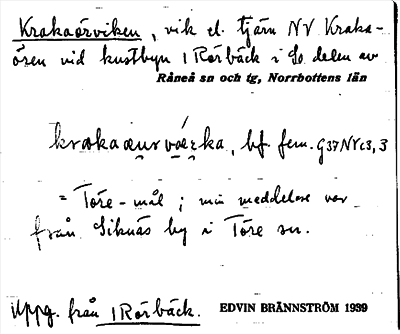 Krakaörviken, vik el. tjärn NV Kraka-
ören vid kustbyn 1 Rörbäck i Sö. delen av
Råneå sn och tg, Norrbottens län
krakaœurvá̤rka, bf. fem. G37NVc3,3
= Töre-mål; min meddelare var
från Siknäs by i Töre sn.
Uppg. från 1 Rörbäck. EDVIN BRÄNNSTRÖM 1939